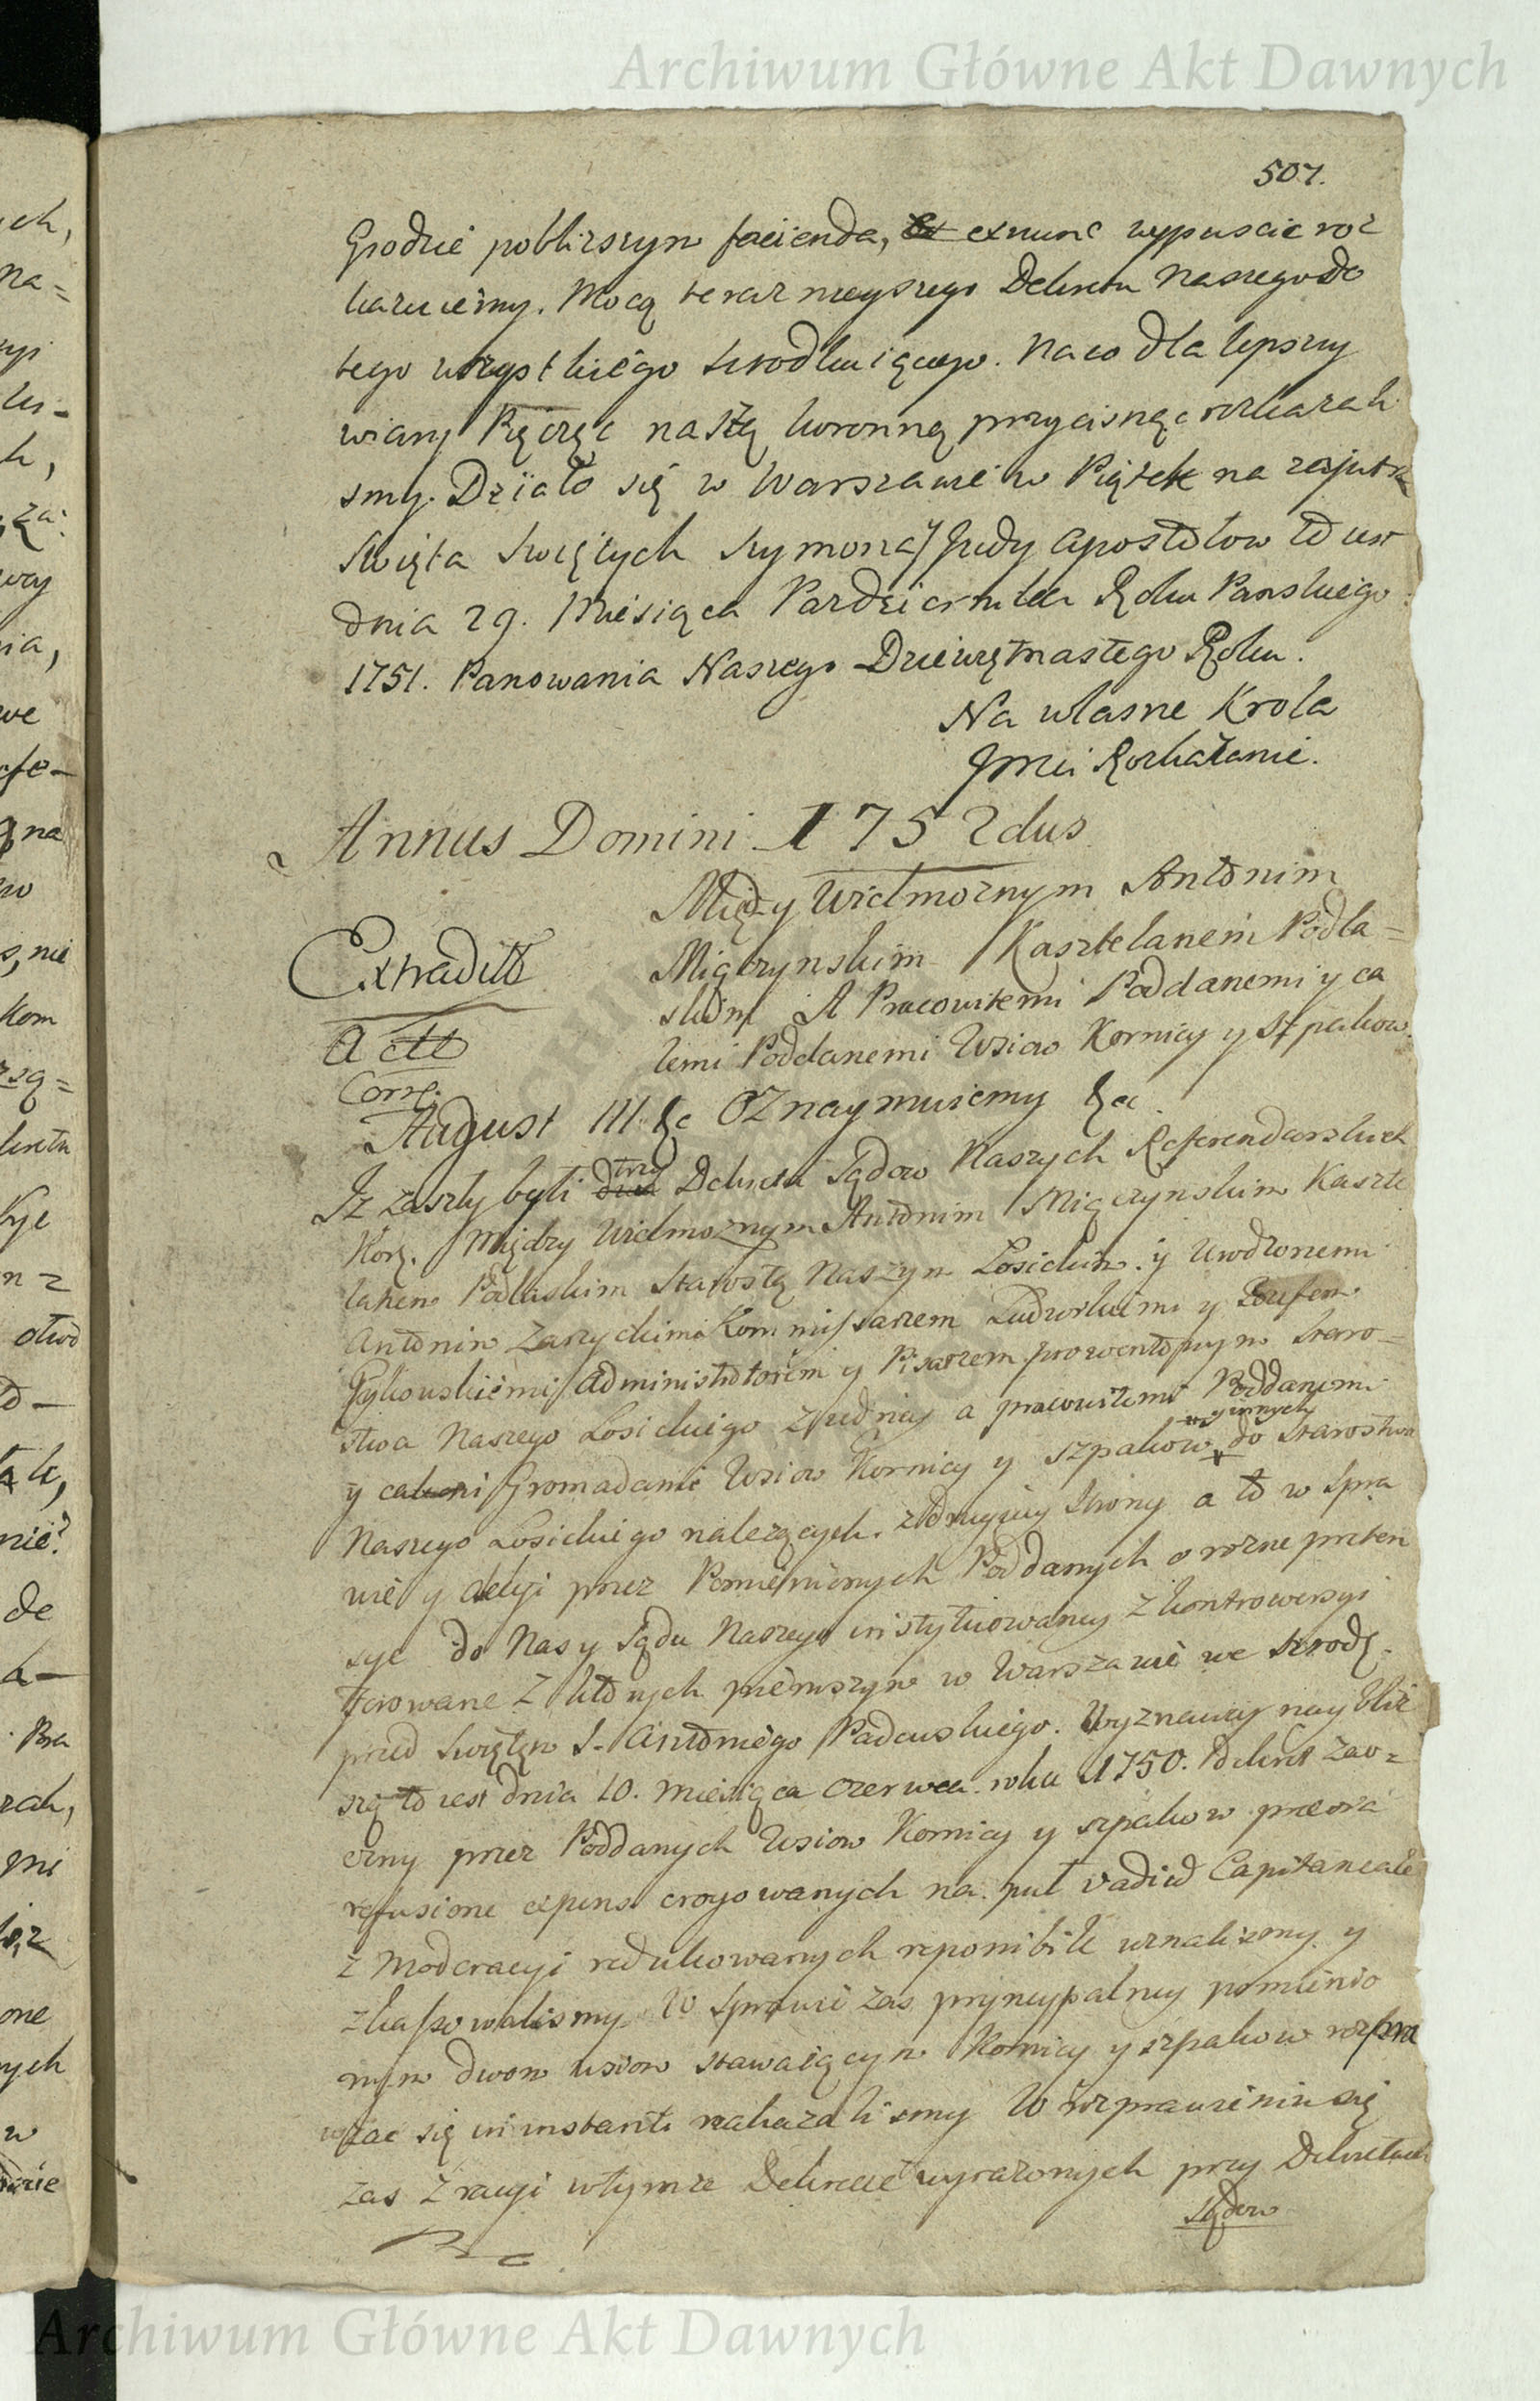 Archiwum Główne Akt Dawnych
507.
Grodzie poblizszym facienda, exnunc wypuscic roz
kazuiemy. Mocą terazneyszego Dekretu Naszego do
tego wszystkiego srodkuiącego. Na co dla lepszey
wiary Pięczęc naszą koronną przycisnąc rozkazali
smy. Działo się w Warszawie w Piątek na zaiutrz
Swięta Swiętych Szymona y Judy Apostołow to iest
dnia 29. Miesiąca Pazdziernika Roku Panskiego
1751. Panowania Naszego Dziewiętnastego Roku.
Na własne Krola
Jmci Rozkazanie.
Annus Domini 1752dus
Między Wielmoznym Antonim
Miączynskim Kasztelanem Podla=
skim A Pracowitemi Poddanemi y ca
łemi Poddanemi Wsiow Kornicy y Szpakow
Extradit
Actt
Corre.
August III. &c Oznaymuiemy &c.
Iz zaszły byli trzy Dekreta Sądow Naszych Referendarskich
Kor. Między Wielmoznym Antonim Miączynskim Kaszte
lanem Podlaskim Starostą Naszym Łosickim y Urodzonemi
Antonim Zarzyckim Kommissarzem Ludwikiem y Jozefem
Administratorem y Pisarzem prowentowym Staro=
stwa Naszego Łosickiego z iedney a pracowitemi Poddanemi
y całemi Gromadami Wsiow Kornicy y Szpakow y innych do Starostwa
Naszego Łosickiego nalezących z drugiey strony a to w Spra
wie y akcyi przez Pomienionych Poddanych o rozne preten
sye do Nas y Sądu Naszego instytuowaney z kontrowersyi
ferowane z ktorych pierwszym w Warszawie we srodę
przed Swiętem S. Antoniego Padewskiego Wyznawcy naybliz
szą to iest dnia 10. Miesiąca Czerwca roku 1750. Dekret zao=
czny przez Poddanych Wsiow Kornicy y Szpakow praevia
refusione expens erogowanych na pul vadiu Capitaneale
z moderacyi redukowanych reponibile uznalismy y
zkassowalismy. W Sprawie zas pryncypalney pomienio
nym dwom wsiom stawaiącym Kornicy y Szpakow rozpra
wiac się in instanti nakazalismy W rozprawieniu się
zas z racyi w tymze Dekrecie wyrazonych przy Dekretach
Sądow
Archiwum Główne Akt Dawnych